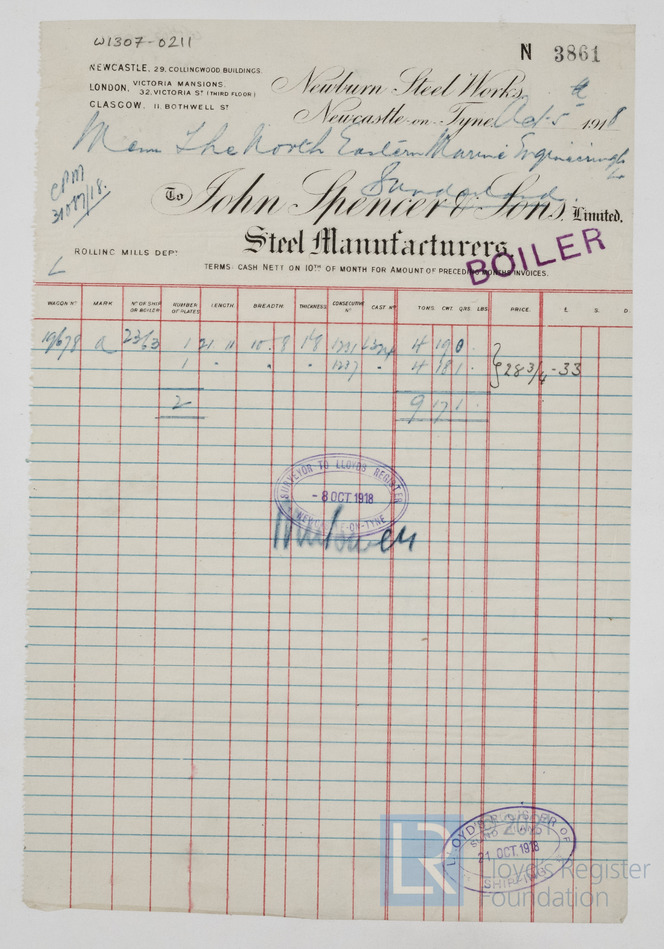 W1307-0211
N 3861
NEWCASTLE, 29, COLLINGWOOD BUILDINGS.
LONDON, VICTORIA MANSIONS,
32, VICTORIA ST (THIRD FLOOR)
GLASGOW, 11, BOTHWELL ST
Newburn Steel Works,
Newcastle-on-Tyne, Oct 5th 1918
Messrs The North Eastern Marine Engineering Co
Sunderland
To John Spencer & Sons, Limited,
Steel Manufacturers.
ROLLING MILLS DEPT
BOILER
TERMS: CASH NETT ON 10TH OF MONTH FOR AMOUNT OF PRECEDING MONTHS INVOICES.
WAGON No MARK No OF SHIP OR BOILER NUMBER OF PLATES LENGTH BREADTH THICKNESS CONSECUTIVE No CAST No TONS CWT. QRS. LBS. PRICE. £ S. D.
a 2363 1 21 11 10 8 4 19 0
1 " " " 1237 " 4 18 1 28 3/4 - 33
2 9 17 1
SURVEYOR TO LLOYDS REGISTER
- 8 OCT. 1918
NEWCASTLE-ON-TYNE
LLOYD'S REGISTER OF
SUNDERLAND
21 OCT. 1918
SHIPPING
LR
Lloyd's Register
Foundation